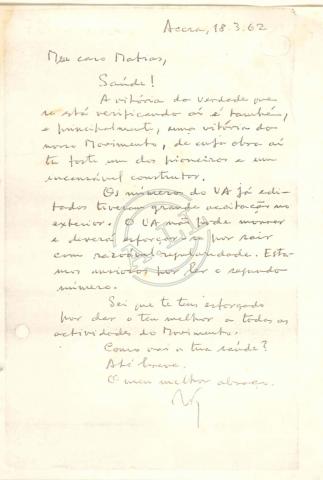 Accra, 18.3.62
Meu caro Matras,
Saúde!
A vitória da verdade que
se está verificando aí é também,
e principalmente, uma vitória do
nosso Movimento, de cuja obra aí
tu foste um dos pioneiros e um
incansável construtor.
Os números do UA já edi-
tados tiveram grande aceitação no
exterior. O UA não pode morrer
e deverá esforçar-se por sair
com razoável regularidade. Esta-
mos ansiosos por ler o segundo
número.
Sei que te tens esforçado
por dar o teu melhor a todas as
actividades do Movimento.
Como vai a tua saúde?
Até breve.
O meu melhor abraço.